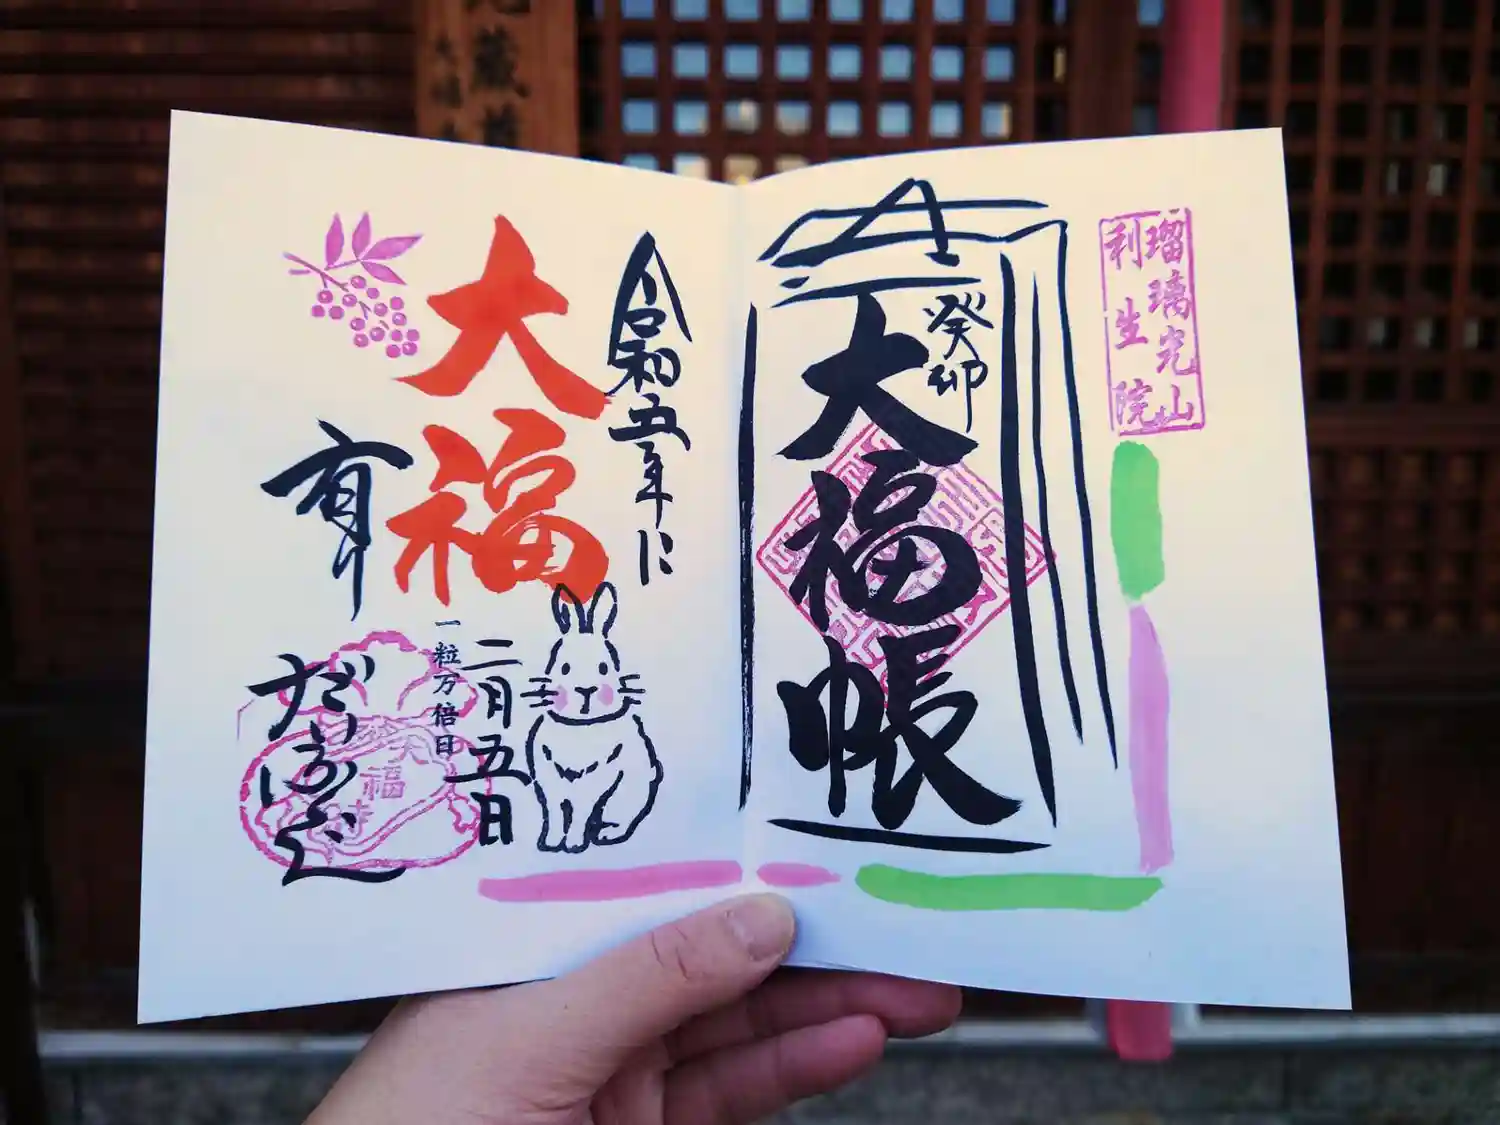 瑠璃光山
利生院
癸卯
大福帳
令和五年に
大福
有り
二月五日
一粒万倍日
大福